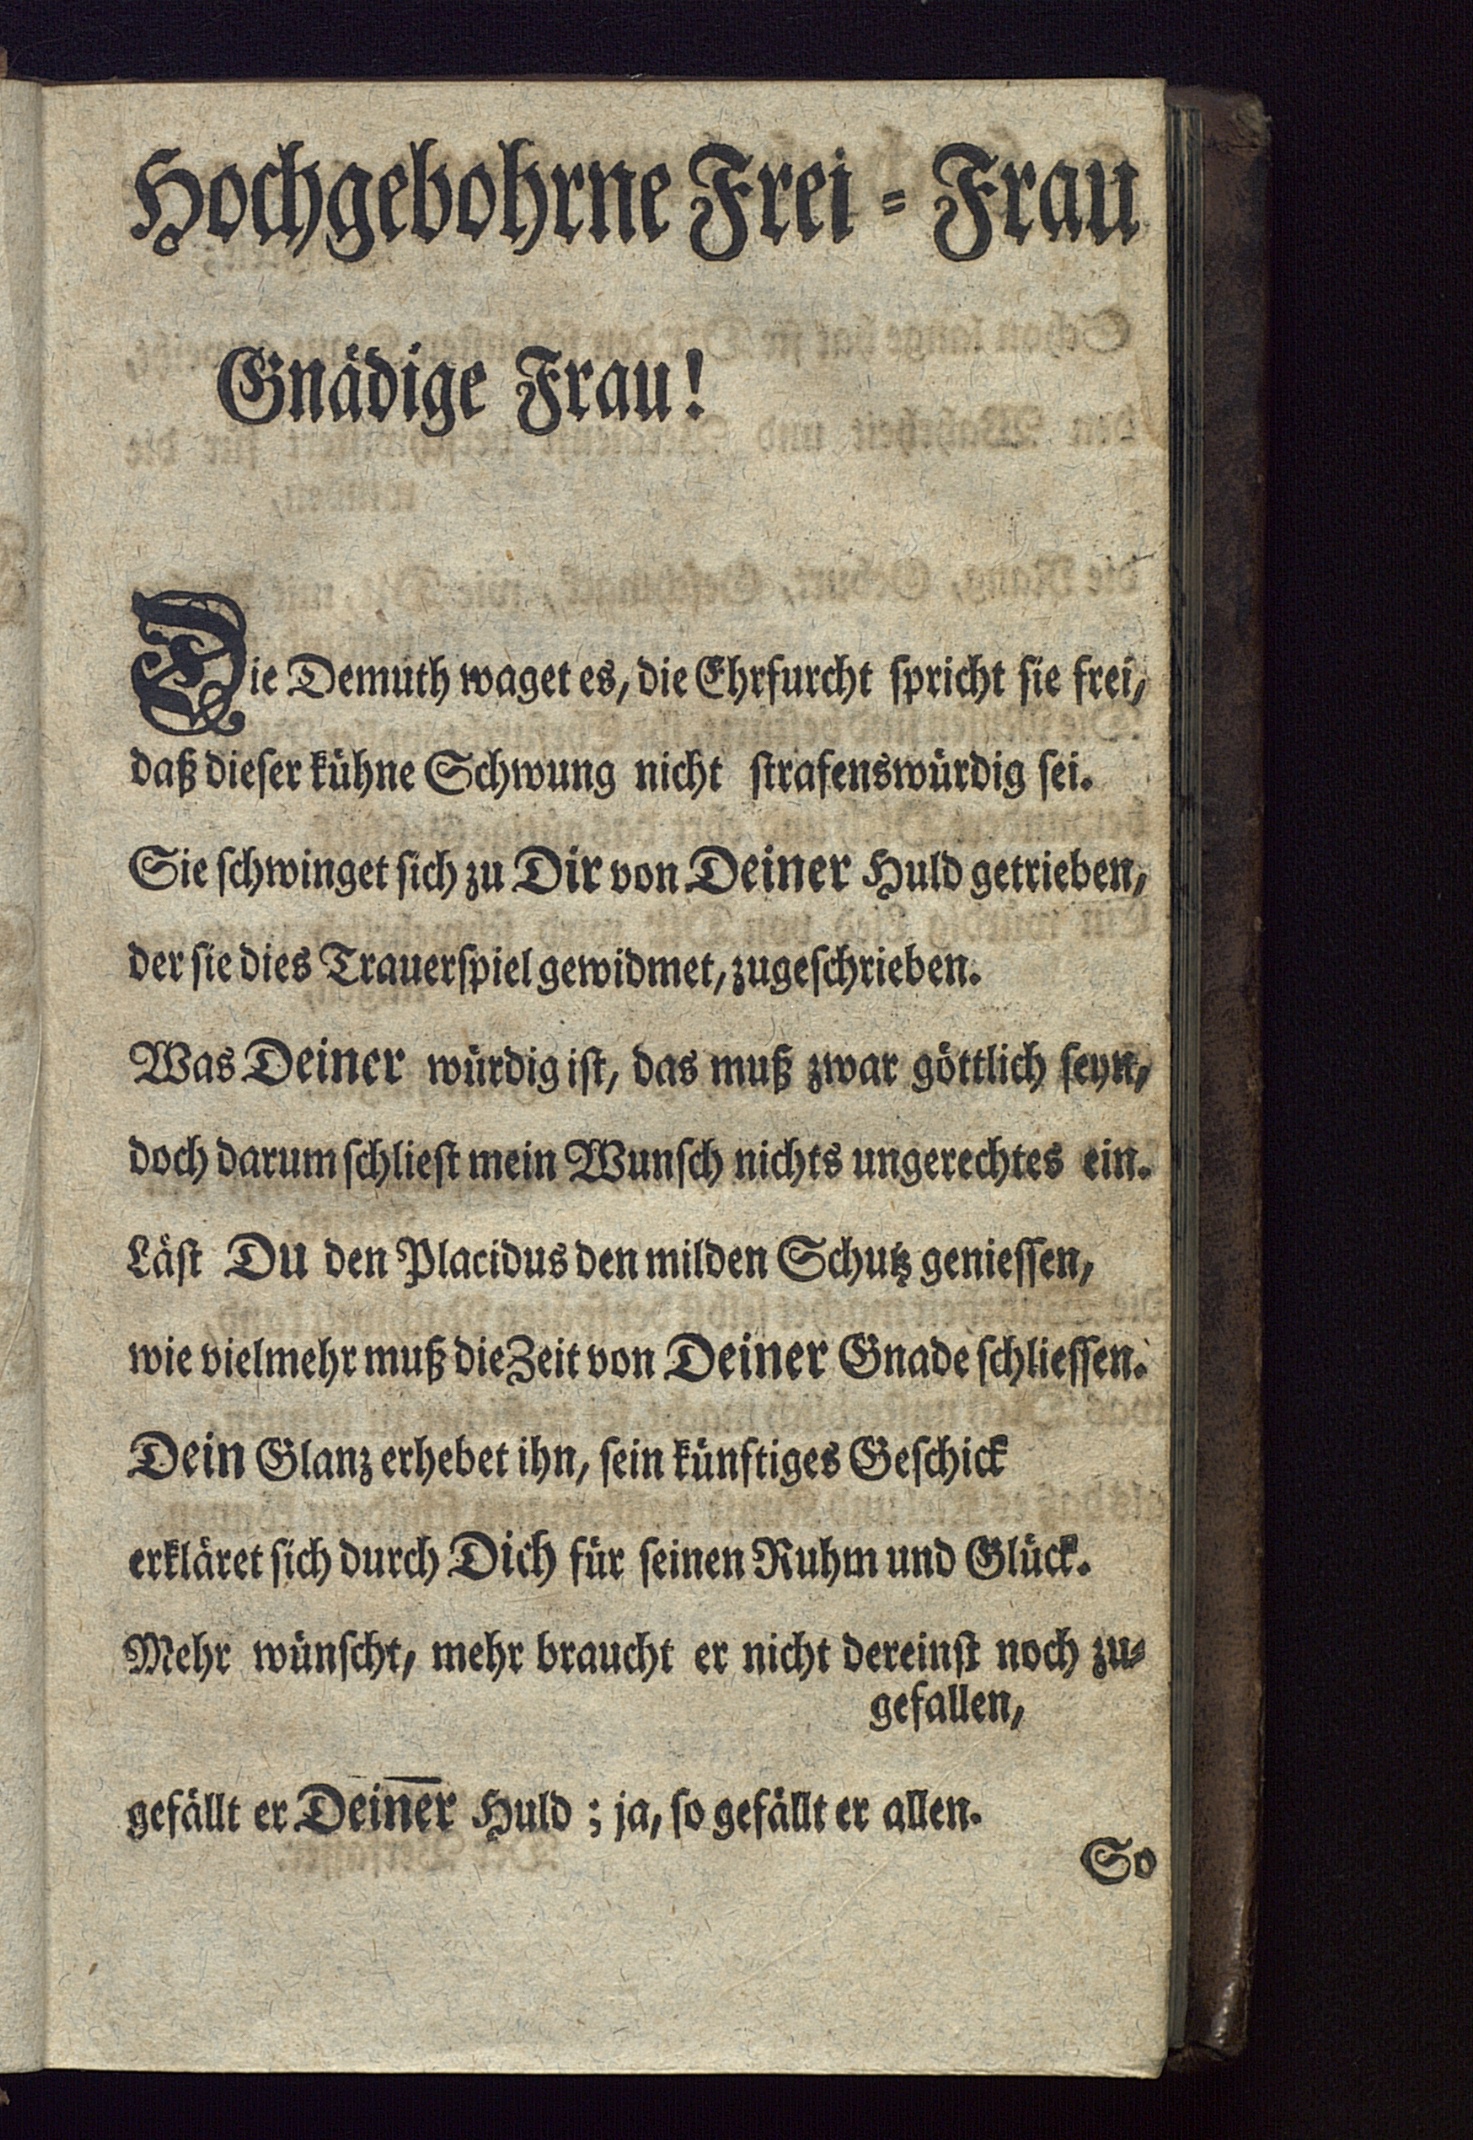 Hochgebohrne Frei-Frau
Gnädige Frau!
Die Demuth waget es, die Ehrfurcht spricht sie frei,
daß dieser kühne Schwung nicht strafenswürdig sei.
Sie schwinget sich zu Dir von Deiner Huld getrieben,
der sie dies Trauerspiel gewidmet, zugeschrieben.
Was Deiner würdig ist, das muß zwar göttlich seyn,
doch darum schliest mein Wunsch nichts ungerechtes ein.
Läst Du den Placidus den milden Schutz geniessen,
wie vielmehr muß die Zeit von Deiner Gnade schliessen.
Dein Glanz erhebet ihn, sein künftiges Geschick
erkläret sich durch Dich für seinen Ruhm und Glück.
Mehr wünscht, mehr braucht er nicht dereinst noch zu-
gefallen,
gefällt er Deiner Huld; ja, so gefällt er allen.
So